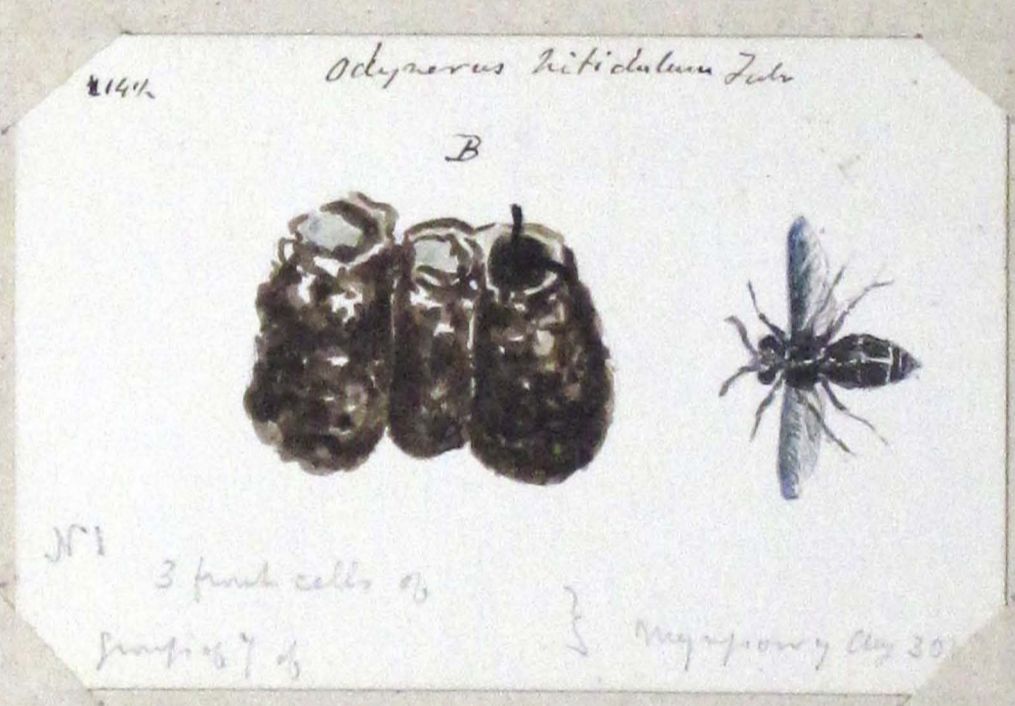 Odynerus nitidulum Fabr
B
No 1
3 front cells of
group of 7 of
Aug 30